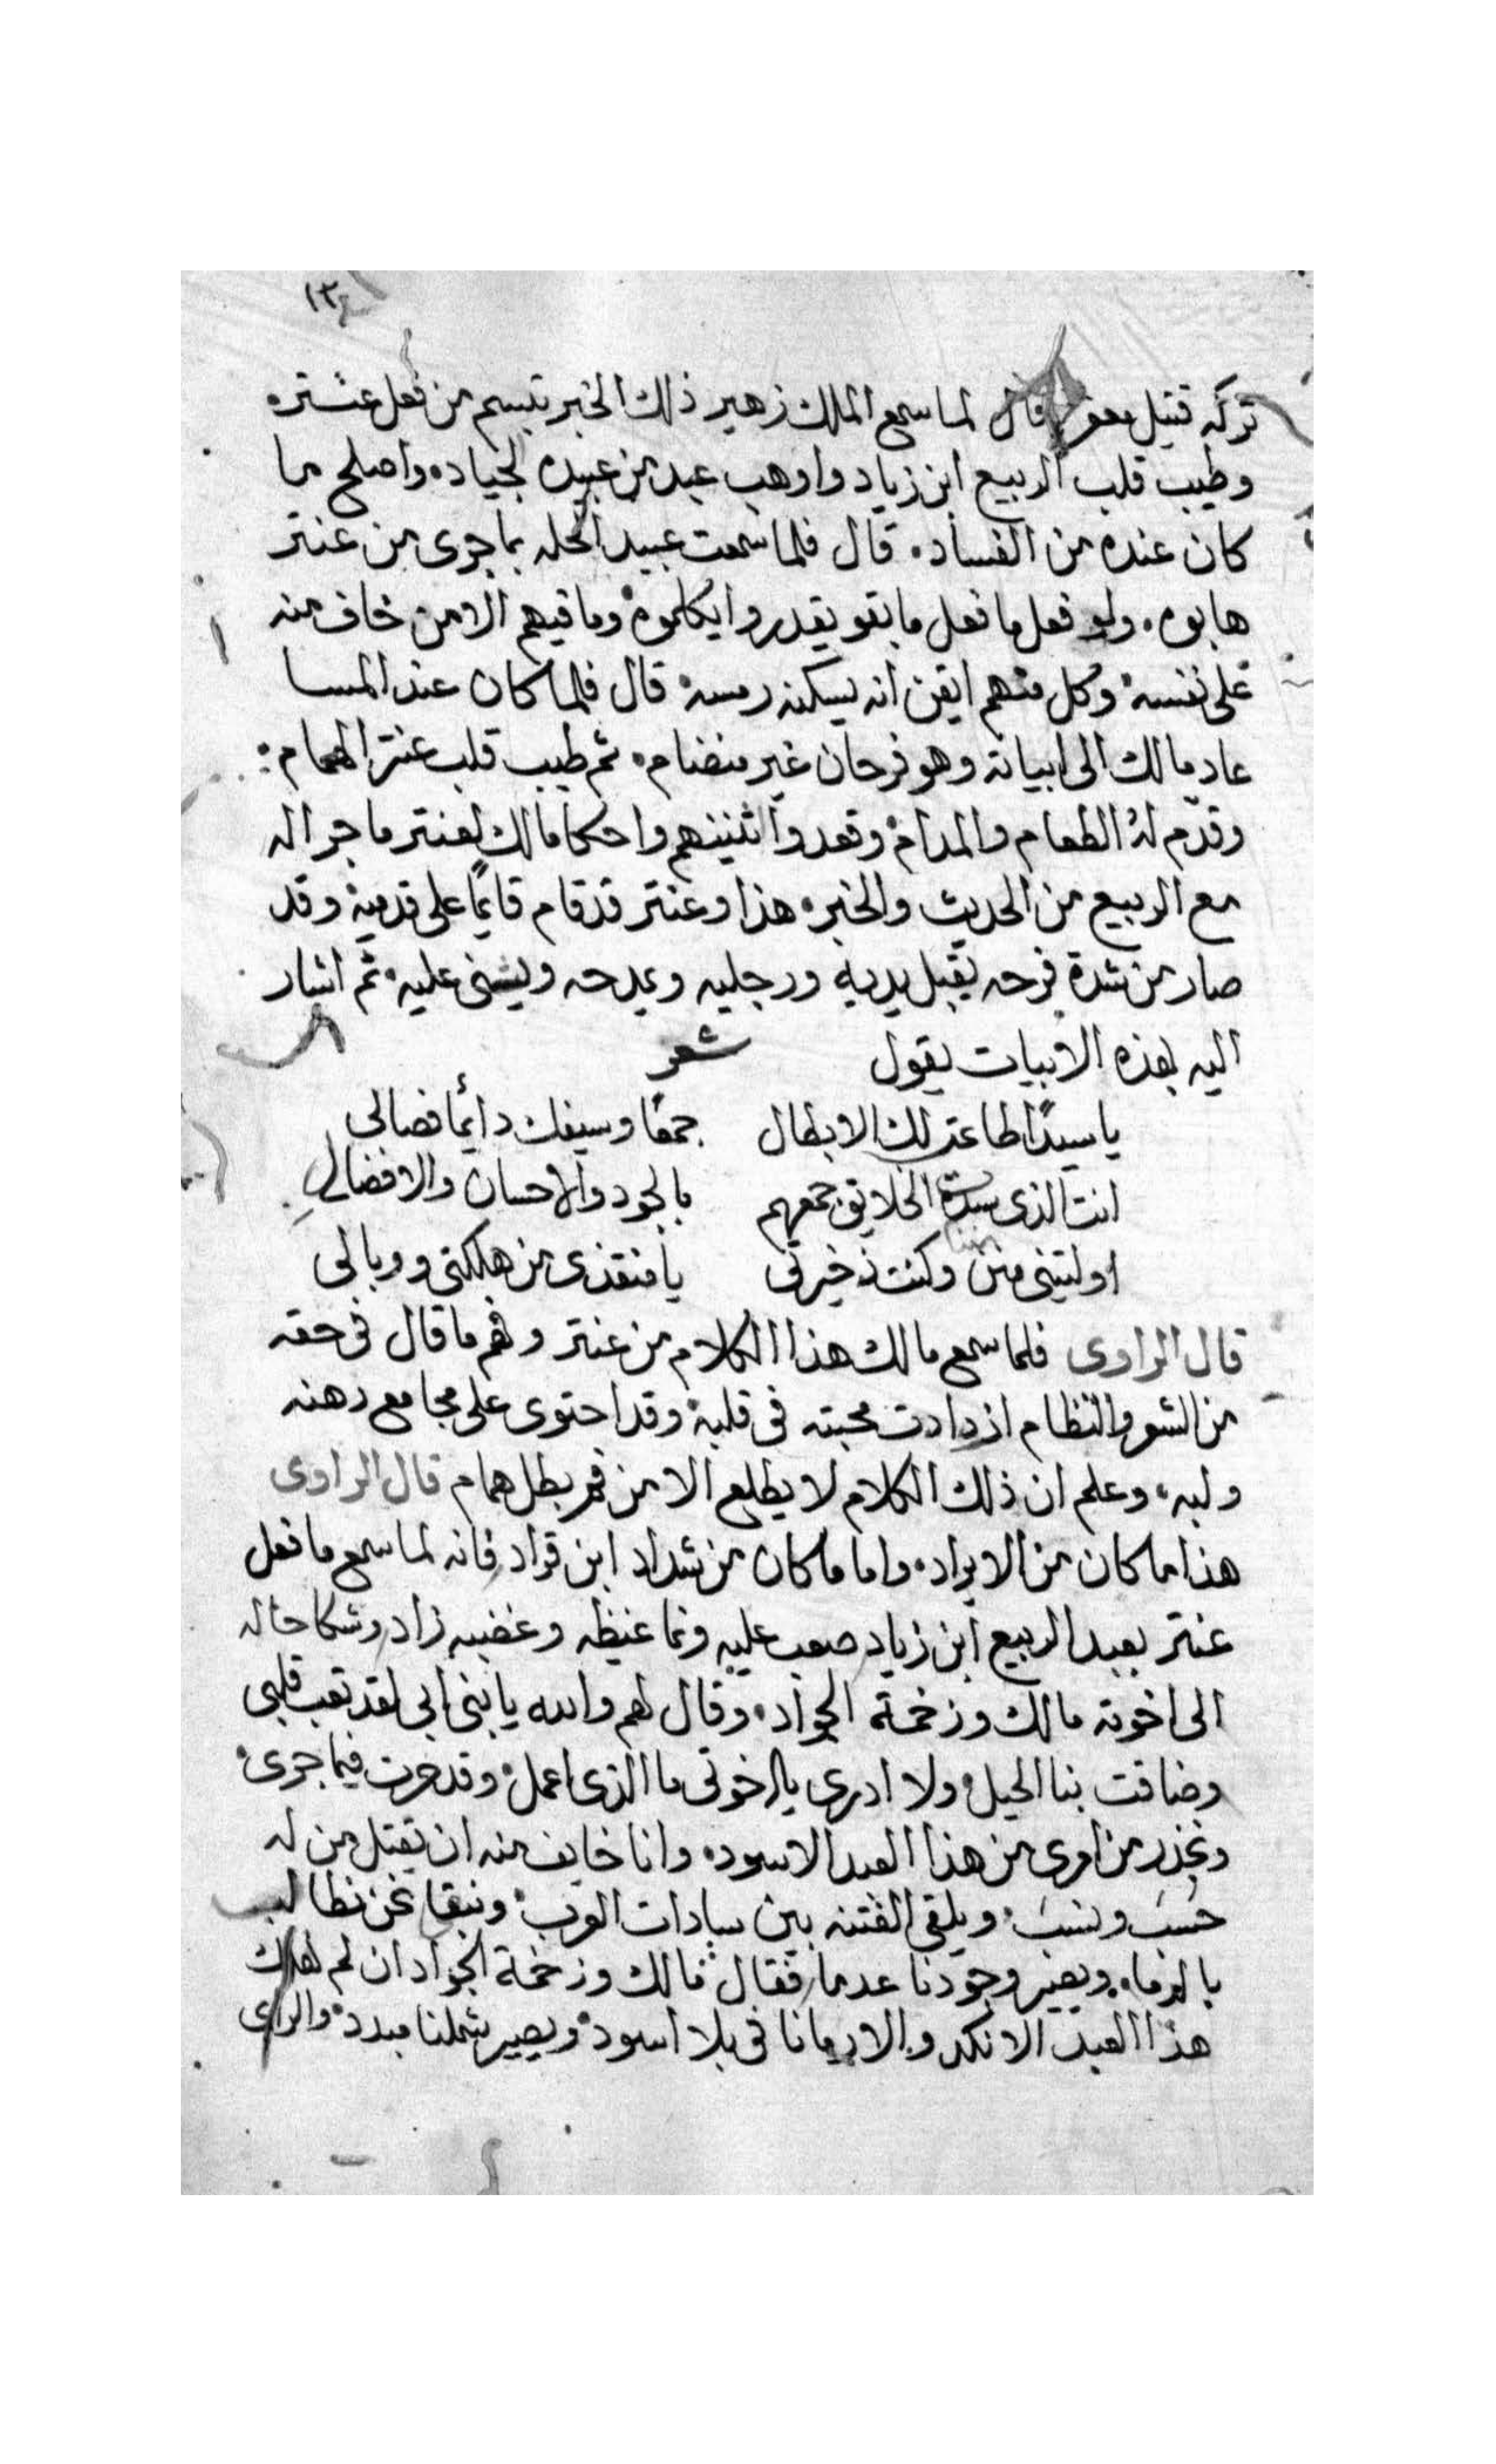 ١٣٤
تركه قتيل معفر قال لما سمع الملك زهير ذلك الخبر تبسم من فعل عنتره
وطيب قلب الربيع ابن زياد واوهب عبد من عبيده لجياده واصلح ما
كان عنده من الفساد. قال فلما سمعت عبيد الحله بما جرى من عنتر
هابوه. ولو فعل ما فعل ما بقو يقدروا يكلموه وما فيهم الا من خاف منه
على نفسه وكل منهم ايقن انه يسكنه رمسه قال فلما كان عند المسا
عاد مالك الى ابياته وهو فرحان غير منضام. ثم طيب قلب عنتر الهمام:
وقدّم لهُ الطعام والمدام وقعدوا اثنينهم واحكا مالك لعنتر ما جرا له
مع الربيع من الحديث والخبر. هذا وعنتر قد قام قايمًا على قدميه وقد
صار من شدة فرحه يقبل يديه ورجليه ويمدحه ويثنى عليه. ثم اشار
اليه بهذه الابيات يقول شعر
يا سيدًا طاعت لك الابطال جمعًا وسيفك دائمًا فصالى
انت الذى سدت الخلايق جمعهم بالجود والاحسان والافضالِ
اوليتنى منن وكنت ذخيرتى يا منقذى من هلكتى ووبالى
قال الراوى فلما سمع مالك هذا الكلام من عنتر وفهم ما قال فى حقه
من الشعر والنظام ازدادت محبته فى قلبه وقد احتوى على مجامع ذهنه
ولبه. وعلم ان ذلك الكلام لا يطلع الا من فم بطل همام قال الراوى
هذا ما كان من الايراد. واما ما كان من شداد ابن قراد فانه لما سمع ما فعل
عنتر بعبد الربيع ابن زياد صعب عليه ونما غيظه وغضبه زاد وشكا حاله
الى اخوته مالك وزخمة الجواد. وقال لهم والله يا بنى ابى لقد تعب قلبى
وضاقت بنا الحيل ولا ادرى يا اخوتى ما الذى اعمل وقد حرت فيما جرى
من امرى من هذا العبد الاسود. وانا خايف منه ان يقتل من له
حَسَبَ ونسبَ. ويلقى الفتنه بين سادات العرب. ونبقا نحن نطالب
بالدما. ويصير وجودنا عدما. فقال مالك وزخمة الجواد ان لم نهلك
هذا العبد الانكد والا رمانا فى بلا اسود ويصير شملنا مبدد. والراى